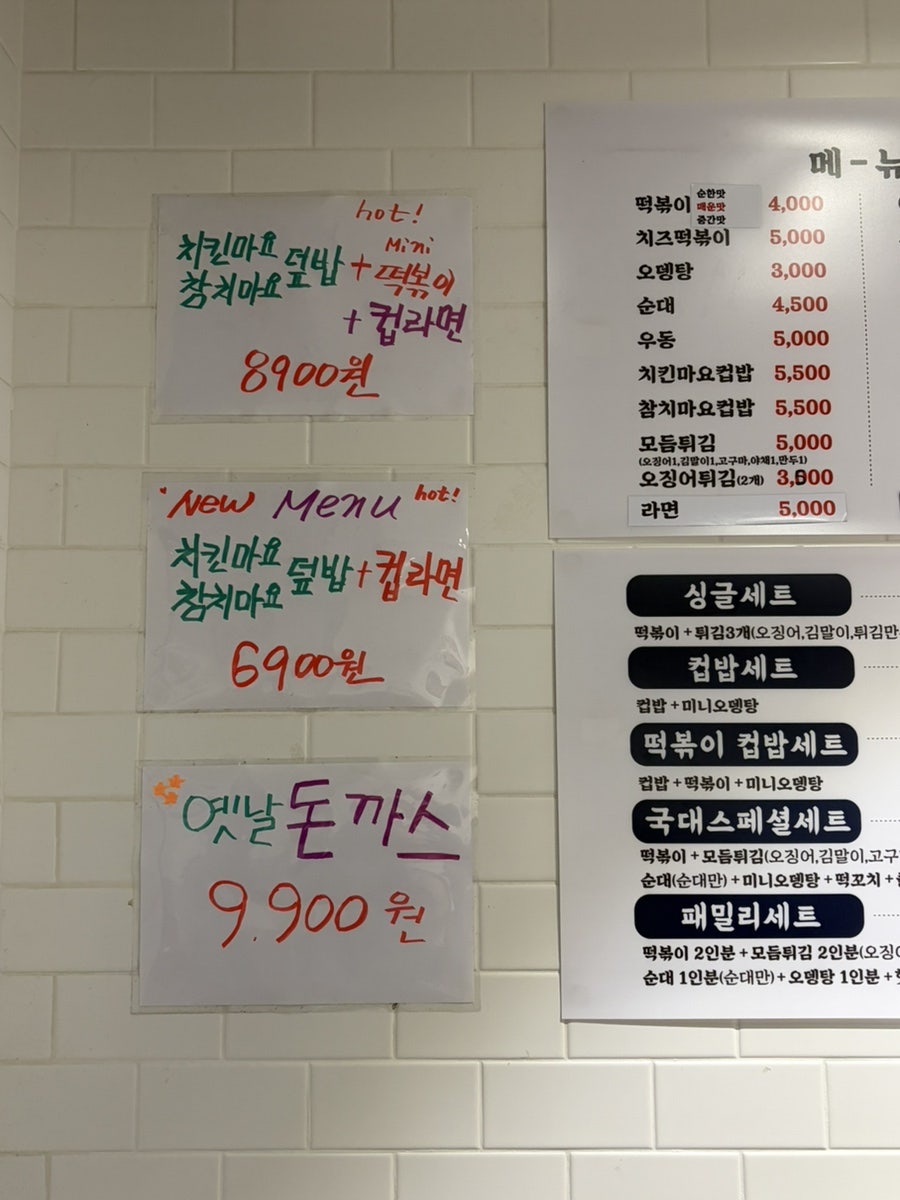 hot!
치킨마요 덮밥 + Mini 떡볶이
참치마요
+ 컵라면
8900원
New Menu hot!
치킨마요 덮밥 + 컵라면
참치마요
6900원
옛날 돈까스
9.900원
메-뉴
떡볶이 순한맛 매운맛 중간맛 4,000
치즈떡볶이 5,000
오뎅탕 3,000
순대 4,500
우동 5,000
치킨마요컵밥 5,500
참치마요컵밥 5,500
모듬튀김 5,000
(오징어1,김말이1,고구마,야채1,만두1)
오징어튀김(2개)
라면 5,000
싱글세트
떡볶이 + 튀김3개(오징어,김말이,튀김만
컵밥세트
컵밥 + 미니오뎅탕
떡볶이 컵밥세트
컵밥 + 떡볶이 + 미니오뎅탕
국대스페셜세트
떡볶이 + 모듬튀김(오징어,김말이,고구
순대(순대만) + 미니오뎅탕 + 떡꼬치 +
패밀리세트
떡볶이 2인분 + 모듬튀김 2인분(오징
순대 1인분(순대만) + 오뎅탕 1인분 +